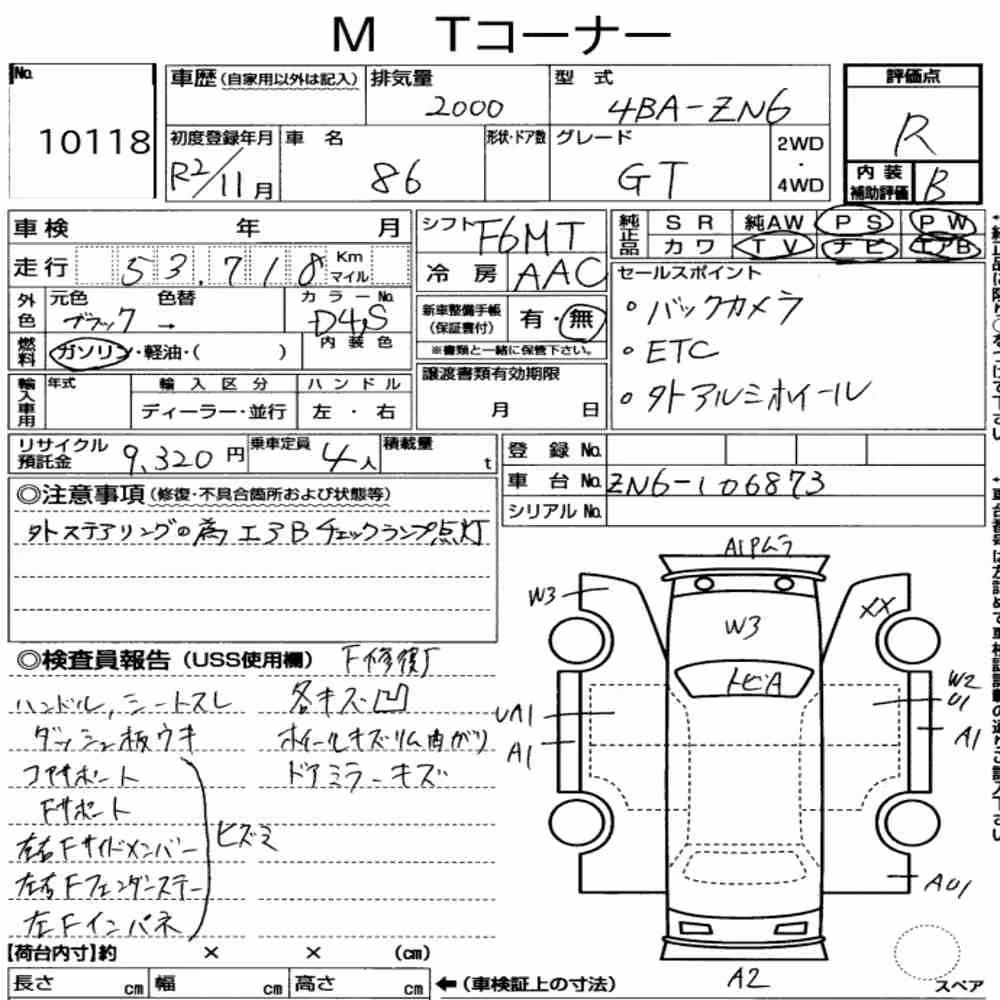 M Tコーナー
No.
10118
車歴(自家用以外は記入)
排気量
2000
型式
4BA-ZN6
評価点
R
初度登録年月
R2/11月
車名
86
形状・ドア数
グレード
GT
2WD
・
4WD
内装
補助評価
B
車検 年 月
走行 53,718 Km
マイル
シフト F6MT
冷房 AAC
純正品
SR 純AW PS PW
カワ TV ナビ エアB
セールスポイント
・バックカメラ
・ETC
・外アルミホイール
外色
元色 色替
ブラック →
カラーNo.
D4S
内装色
燃料
ガソリン・軽油・( )
新車整備手帳
(保証書付)
有・無
※書類と一緒に保管下さい。
輸入車用
年式
輸入区分
ディーラー・並行
ハンドル
左・右
譲渡書類有効期限
月 日
リサイクル
預託金
9,320円
乗車定員
4人
積載量
t
登録No.
車台No.
ZN6-106873
シリアルNo.
◎注意事項(修復・不具合箇所および状態等)
外ステアリングの為エアBチェックランプ点灯
◎検査員報告(USS使用欄)
F修復
ハンドル,シートスレ
各キズ凹
ダッシュ板ウキ
ホイールキズリム曲がり
コアサポート
ドアミラーキズ
Fサポート
左右Fサイドメンバー
ヒズミ
左右Fフェンダーステー
左Fインパネ
A1Pムラ
W3
XX
W3
トビA
UA1
A1
W2
U1
A1
AU1
A2
スペア
【荷台内寸】約 × × (cm)
長さ cm
幅 cm
高さ cm
←(車検証上の寸法)